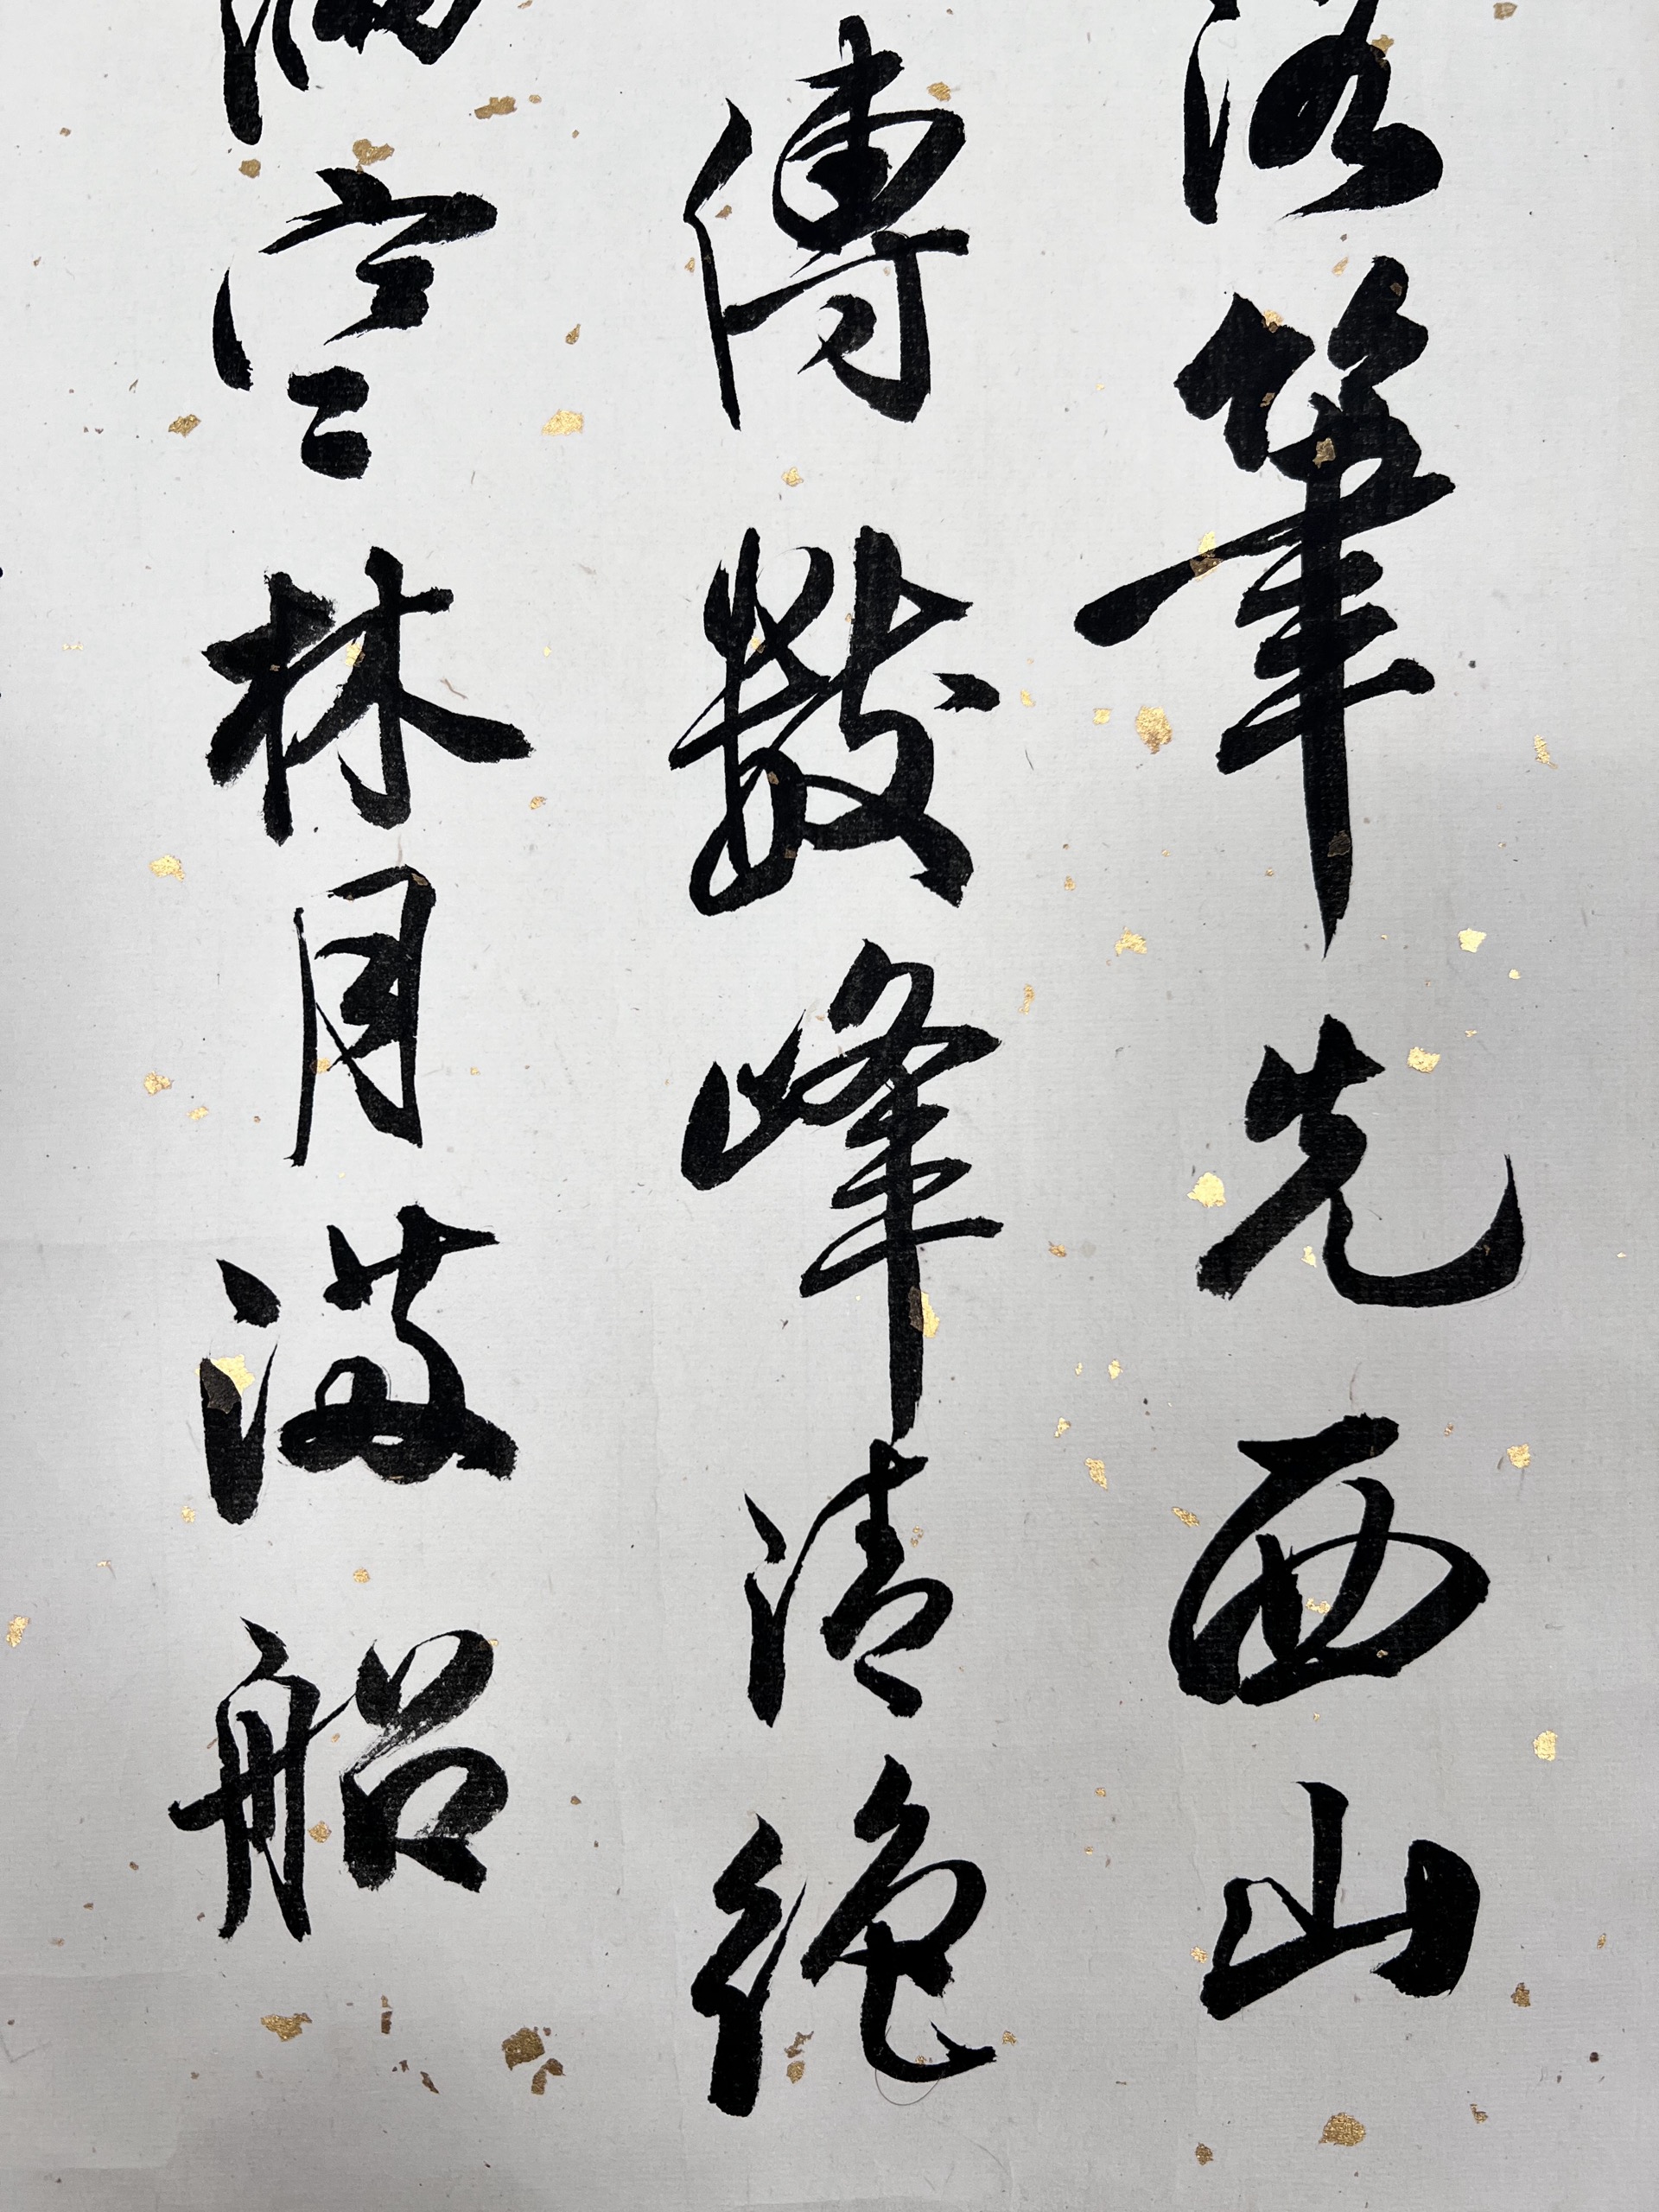 筆先西山
傳數峰清絕
空林月滿船